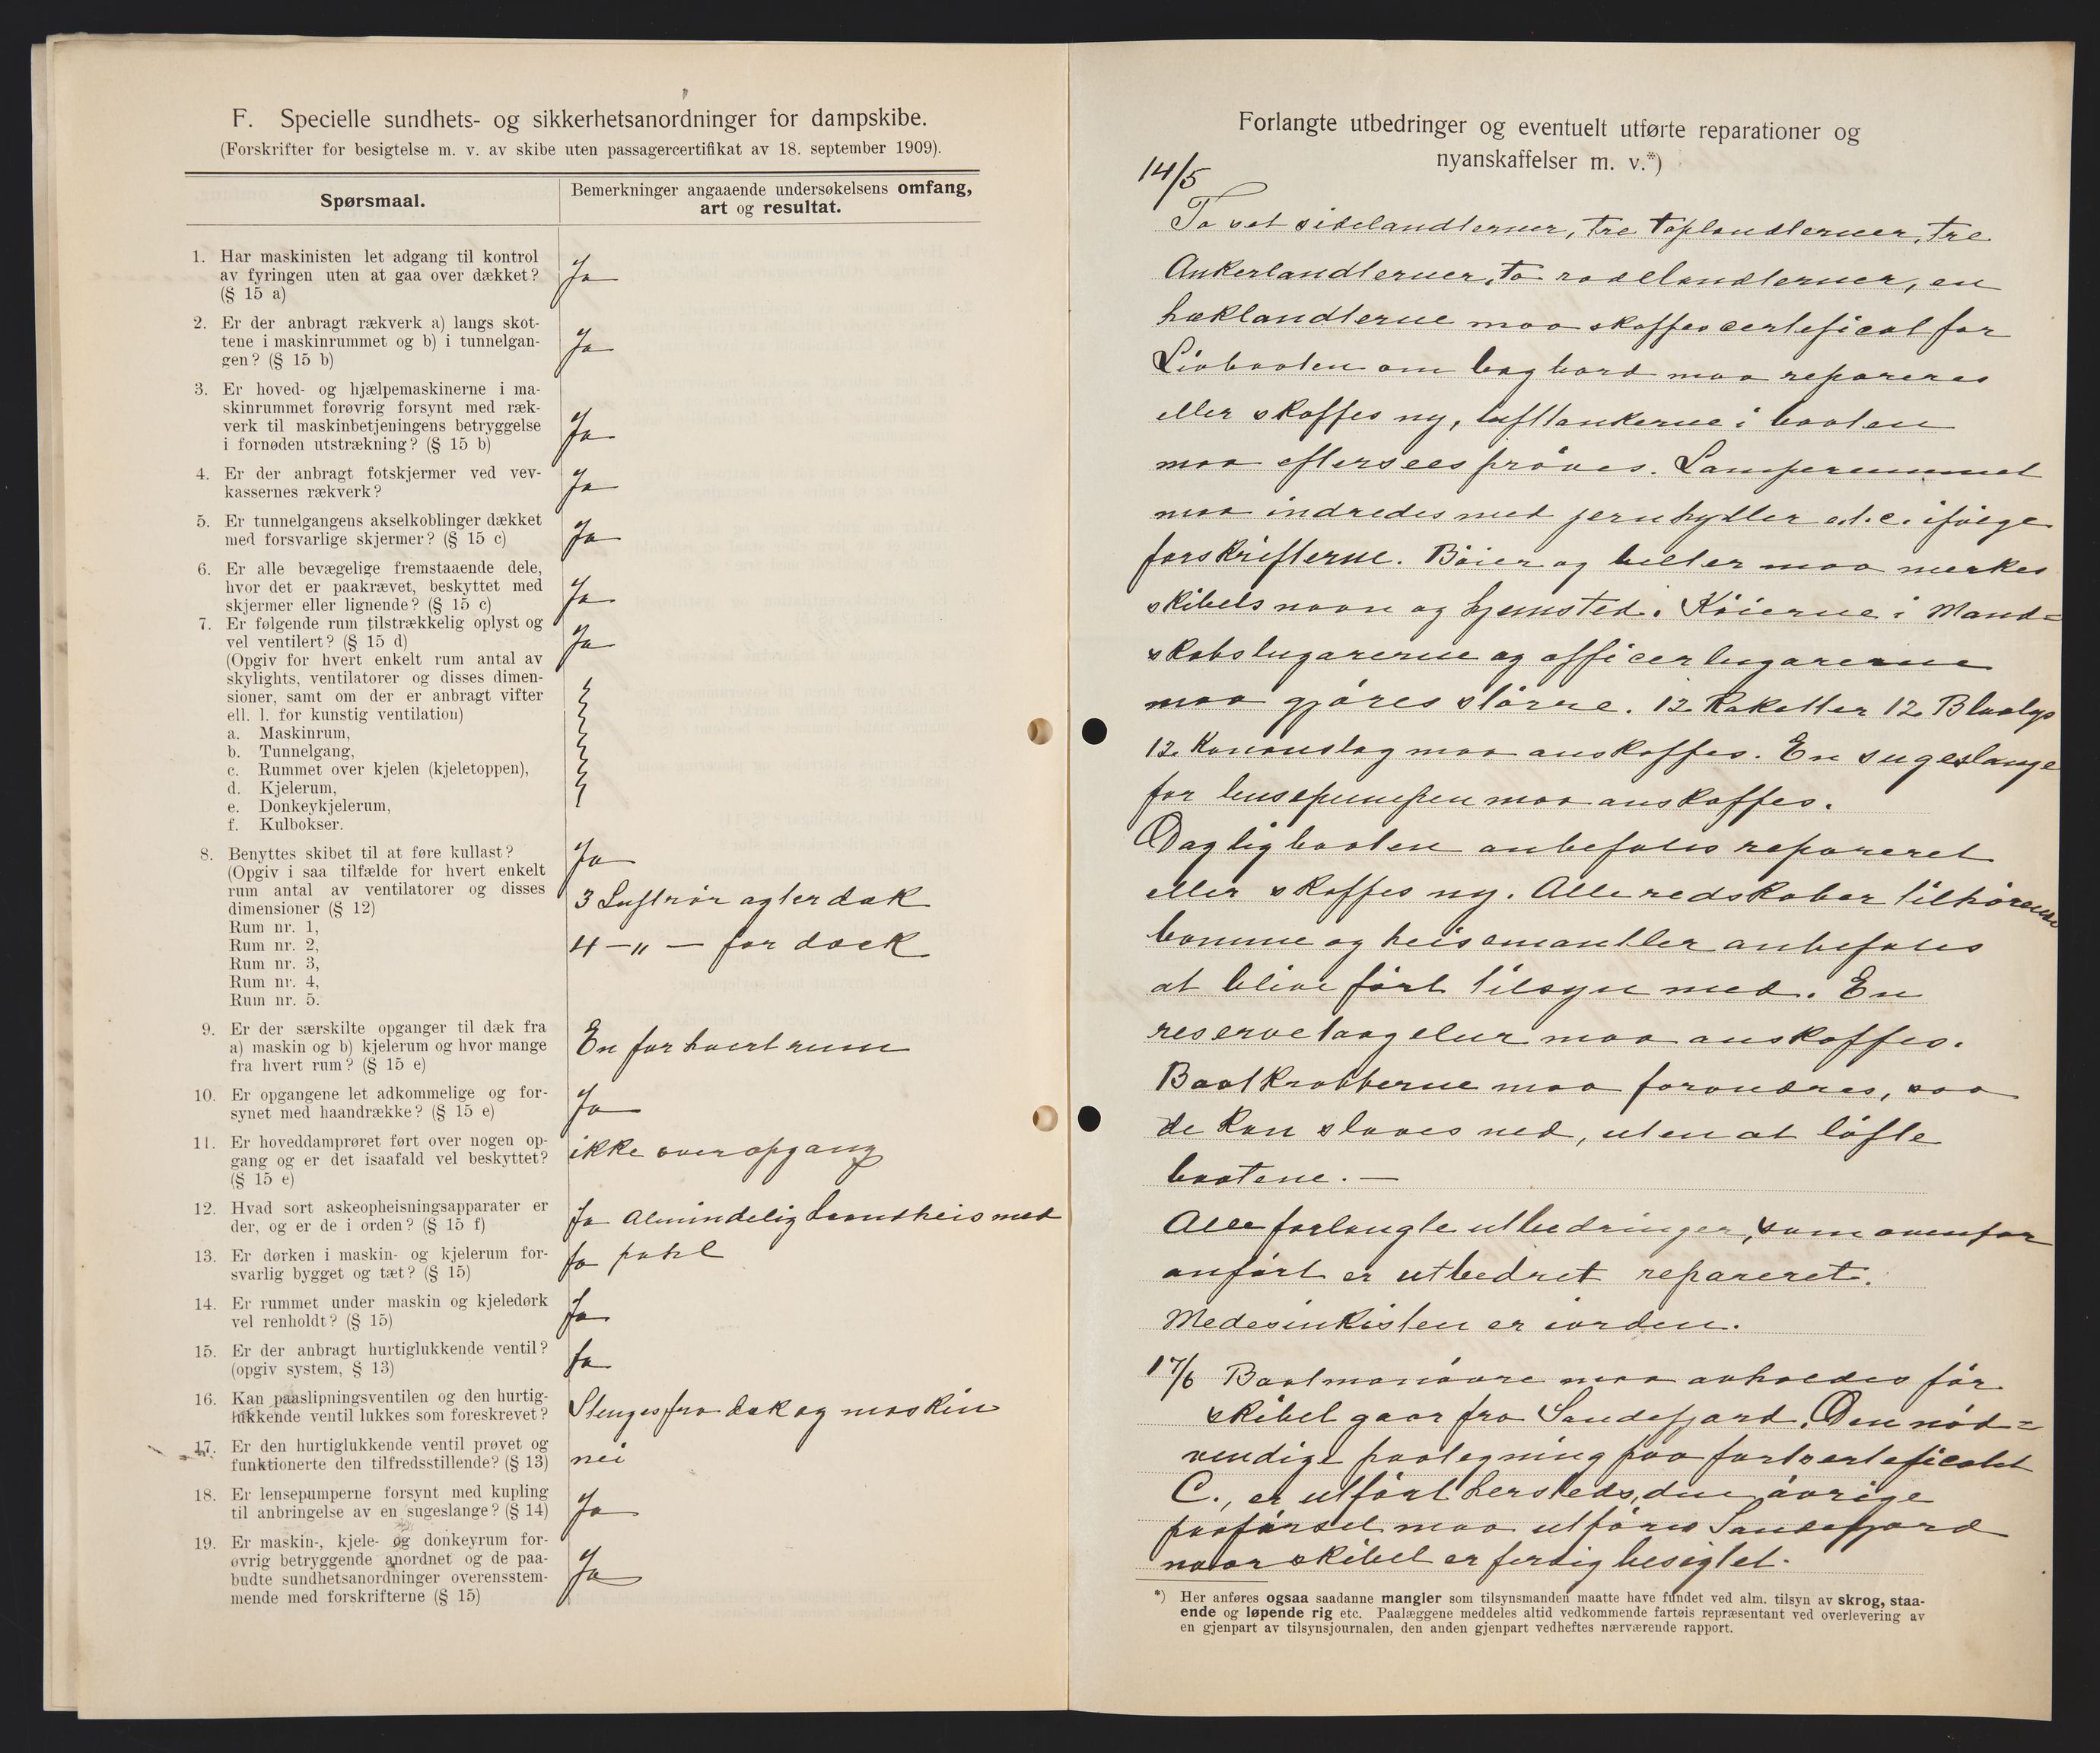 F. Specielle sundhets- og sikkerhetsanordninger for dampskibe.
(Forskrifter for besigtelse m. v. av skibe uten passagercertifikat av 18. september 1909).
Spørsmaal.
Bemerkninger angaaende undersøkelsens omfang,
art og resultat.
1. Har maskinisten let adgang til kontrol
av fyringen uten at gaa over dækket?
(§ 15 a)
Ja
2. Er der anbragt rækverk a) langs skot-
tene i maskinrummet og b) i tunnelgan-
gen? (§ 15 b)
Ja
3. Er hoved- og hjælpemaskinerne i ma-
skinrummet forøvrig forsynt med ræk-
verk til maskinbetjeningens betryggelse
i fornøden utstrækning? (§ 15 b)
Ja
4. Er der anbragt fotskjermer ved vev-
kassernes rækverk?
Ja
5. Er tunnelgangens akselkoblinger dækket
med forsvarlige skjermer? (§ 15 c)
Ja
6. Er alle bevægelige fremstaaende dele,
hvor det er paakrævet, beskyttet med
skjermer eller lignende? (§ 15 c)
Ja
7. Er følgende rum tilstrækkelig oplyst og
vel ventilert? (§ 15 d)
Ja
(Opgiv for hvert enkelt rum antal av
skylights, ventilatorer og disses dimen-
sioner, samt om der er anbragt vifter
ell. l. for kunstig ventilation)
a. Maskinrum,
b. Tunnelgang,
c. Rummet over kjelen (kjeletoppen),
d. Kjelerum,
e. Donkeykjelerum,
f. Kulbokser.
8. Benyttes skibet til at føre kullast?
(Opgiv i saa tilfælde for hvert enkelt
rum antal av ventilatorer og disses
dimensioner (§ 12)
Rum nr. 1,
Rum nr. 2,
Rum nr. 3,
Rum nr. 4,
Rum nr. 5.
Ja
3 Luftrør agter dæk
4 – " – for dæck
9. Er der særskilte opganger til dæk fra
a) maskin og b) kjelerum og hvor mange
fra hvert rum? (§ 15 e)
En for hvert rum
10. Er opgangene let adkommelige og for-
synet med haandrække? (§ 15 e)
Ja
11. Er hoveddamprøret ført over nogen op-
gang og er det isaafald vel beskyttet?
(§ 15 e)
ikke over opgang
12. Hvad sort askeopheisningsapparater er
der, og er de i orden? (§ 15 f)
Ja Almindelig haandheis med
13. Er dørken i maskin- og kjelerum for-
svarlig bygget og tæt? (§ 15)
Ja pahl
14. Er rummet under maskin og kjeledørk
vel renholdt? (§ 15)
Ja
15. Er der anbragt hurtiglukkende ventil?
(opgiv system, § 13)
Ja
16. Kan paaslipningsventilen og den hurtig-
lukkende ventil lukkes som foreskrevet?
Stenges fra dæk og maskin
17. Er den hurtiglukkende ventil prøvet og
funktionerte den tilfredsstillende? (§ 13)
nei
18. Er lensepumperne forsynt med kupling
til anbringelse av en sugeslange? (§ 14)
Ja
19. Er maskin-, kjele- og donkeyrum for-
øvrig betryggende anordnet og de paa-
budte sundhetsanordninger overensstem-
mende med forskrifterne (§ 15)
Ja
Forlangte utbedringer og eventuelt utførte reparationer og
nyanskaffelser m. v.*)
14/5
To set sidelandterner, tre toplandterner, tre
Ankerlandterner, to rodelandterner, en
hæklandterne maa skaffes certeficat for
Livbaaten om bagbord maa repareres
eller skaffes ny, lufttankerne i baaten
maa eftersees prøves. Lamperummet
maa indredes med jernhyller e.t.c. ifølge
forskrifterne. Bøier og belter maa merkes
skibets navn og hjemsted. Køierne i Mand=
skabslugarerne og officerlugarerne
maa gjøres større. 12 Raketter 12 Blaalys
12 Kanonslag maa anskaffes. En sugeslange
for lensepumpen maa anskaffes.
Dagligbaaten anbefales reparert
eller skaffes ny. Alle redskaber tilhørende
bomme og heisemantler anbefales
at blive ført tilsyn med. En
reservetaagelur maa anskaffes.
Baatkrabberne maa forandres, saa
de kan slaaes ned, uten at løfte
baatene. –
Alle forlangte utbedringer, som ovenfor
anført er utbedret reparert.
Medesinkisten er iorden.
17/6 Baatmanøvre maa avholdes før
skibet gaar fra Sandefjord. Den nød=
vendige paategning paa fartcerteficatet
C., er utført hersteds, den øvrige
paaførsel maa utføres Sandefjord
naar skibet er ferdig besigtet.
*) Her anføres ogsaa saadanne mangler som tilsynsmanden maatte have fundet ved alm. tilsyn av skrog, staa-
ende og løpende rig etc. Paalæggene meddeles altid vedkommende fartøis repræsentant ved overlevering av
en gjenpart av tilsynsjournalen, den anden gjenpart vedheftes nærværende rapport.